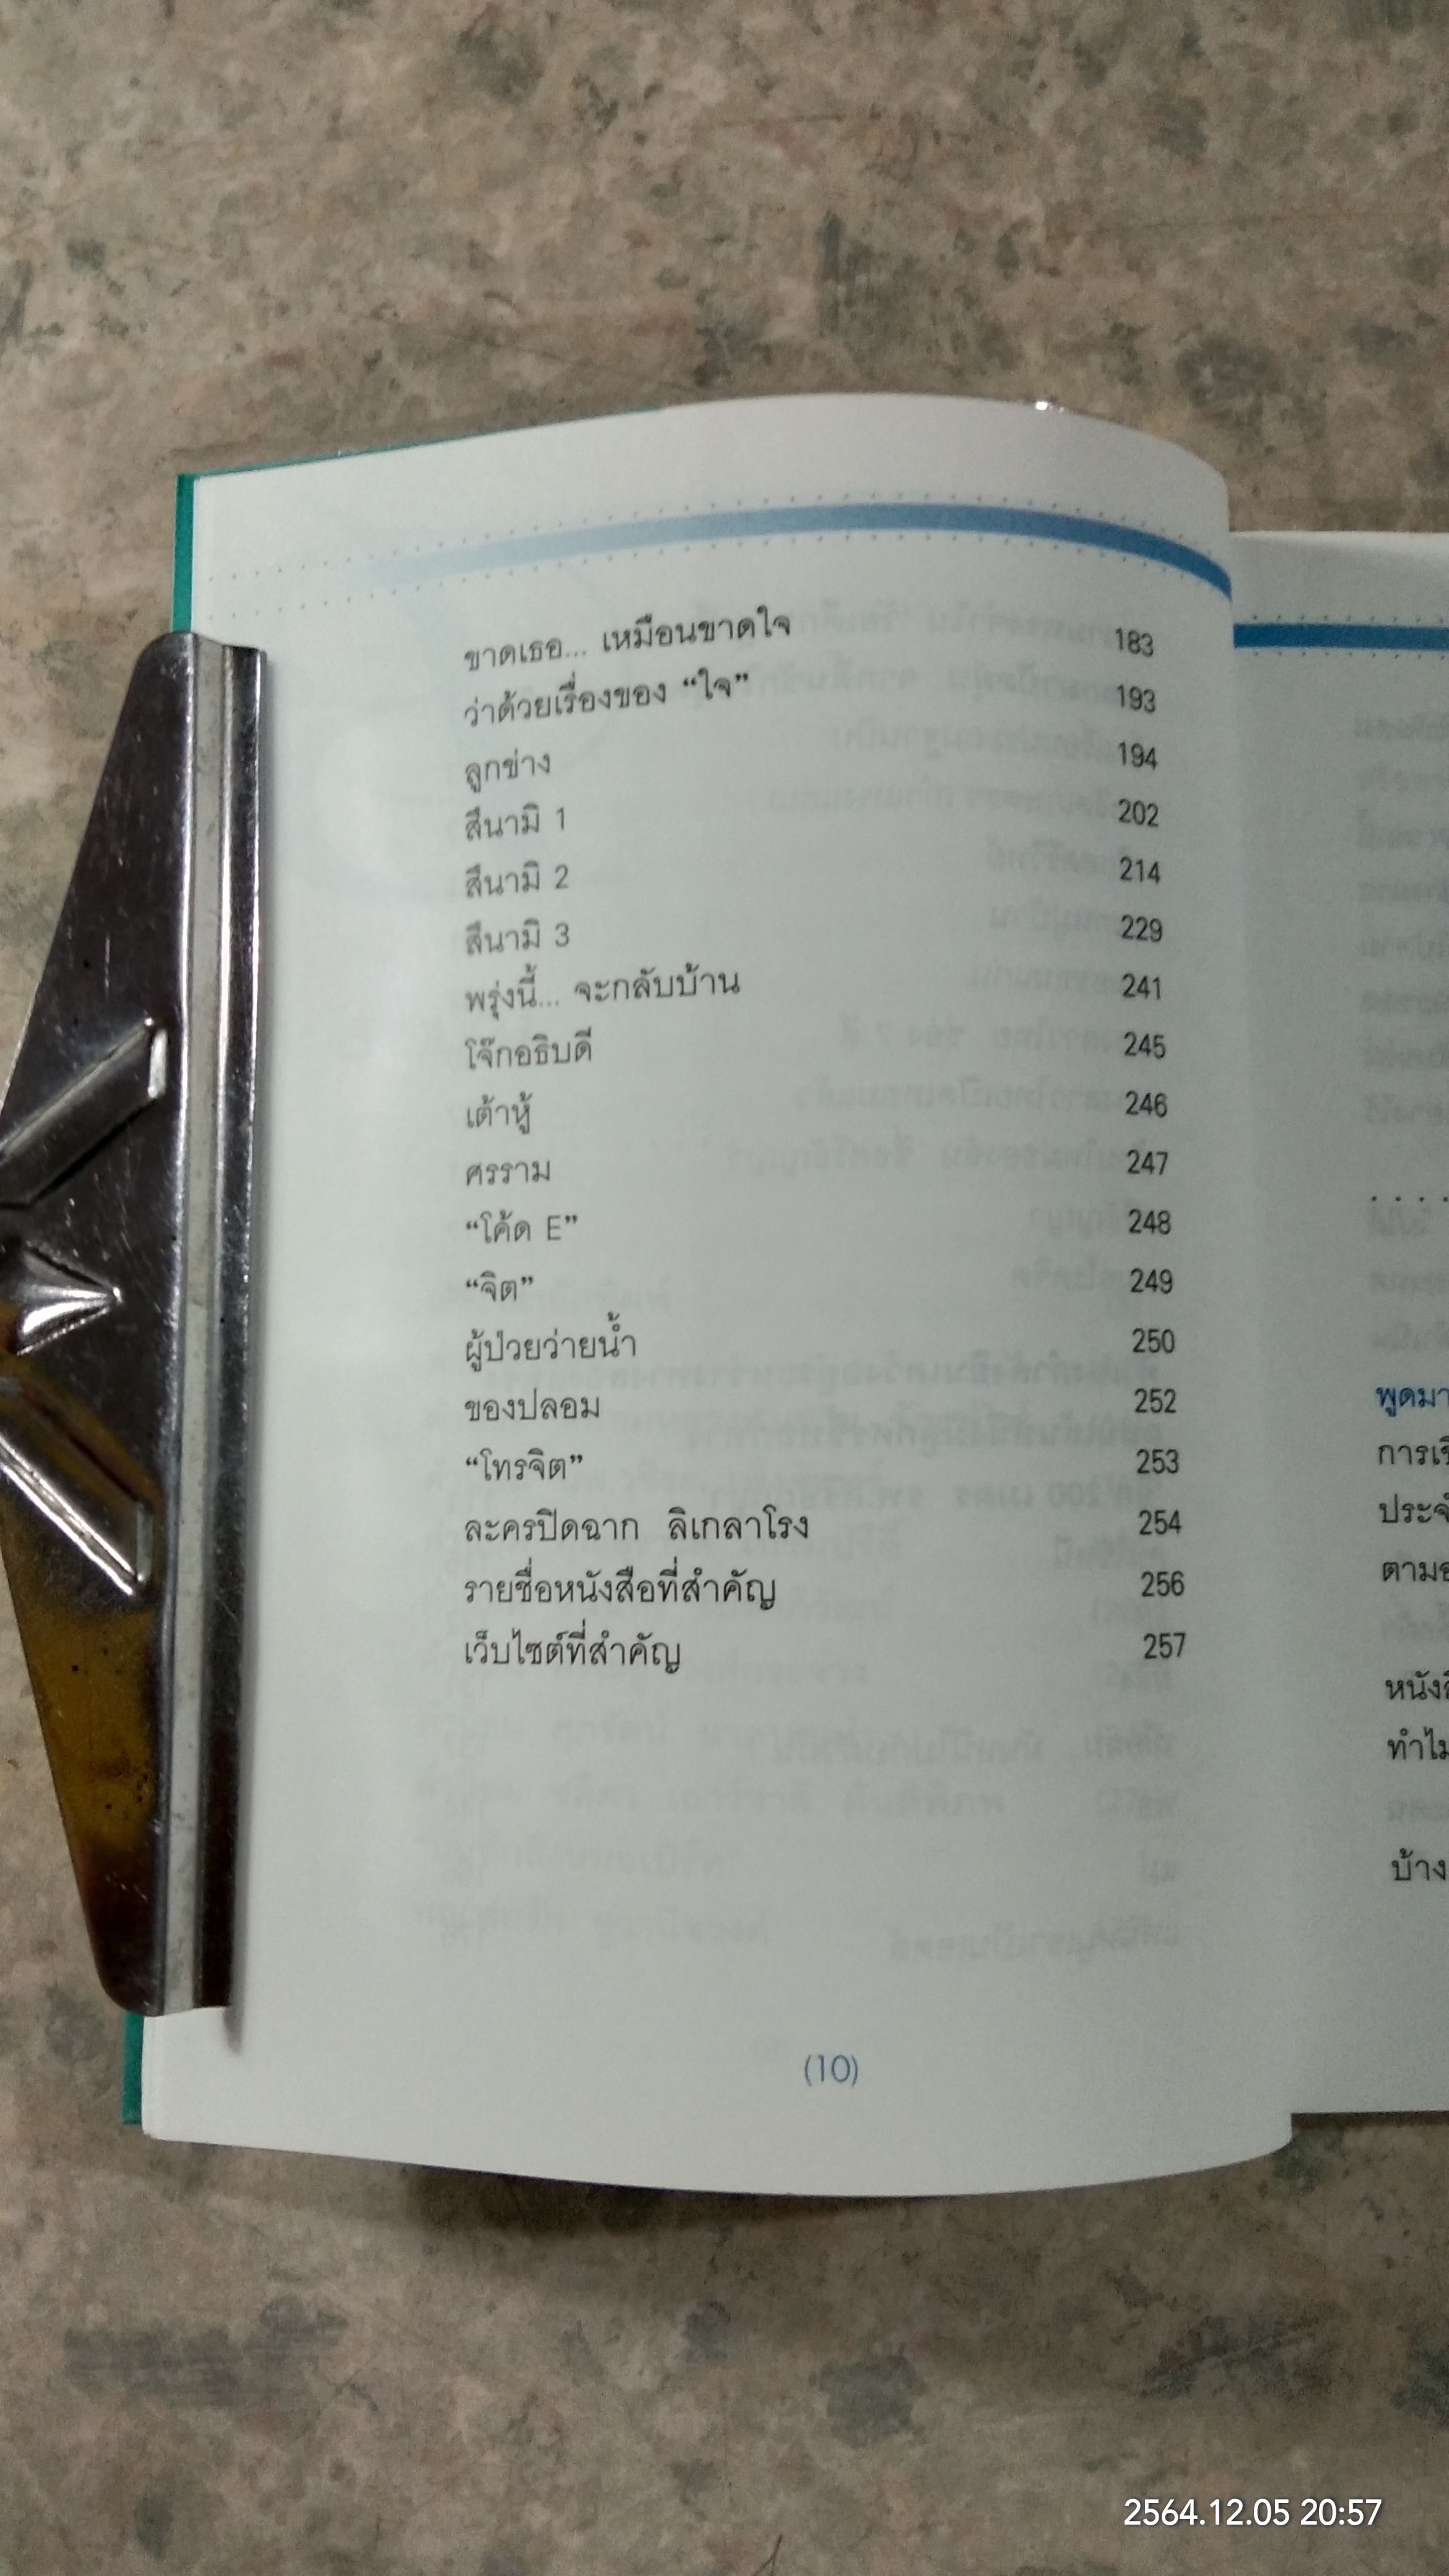 ขาดเธอ... เหมือนขาดใจ 183
ว่าด้วยเรื่องของ “ใจ” 193
ลูกข่าง 194
สึนามิ 1 202
สึนามิ 2 214
สึนามิ 3 229
พรุ่งนี้... จะกลับบ้าน 241
โจ๊กอธิบดี 245
เต้าหู้ 246
ศรราม 247
“โค้ด E” 248
“จิต” 249
ผู้ป่วยว่ายน้ำ 250
ของปลอม 252
“โทรจิต” 253
ละครปิดฉาก ลิเกลาโรง 254
รายชื่อหนังสือที่สำคัญ 256
เว็บไซต์ที่สำคัญ 257
(10)
พูดมา
การเ
ประจ
ตาม
หนัง
ทำไม
บ้าง
2564.12.05 20:57